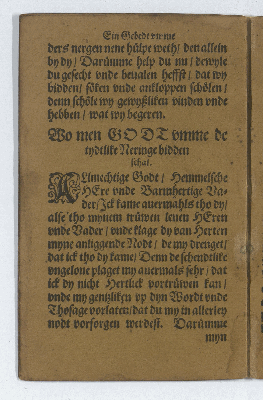 Ein Gebedt vmme
ders nergen nene hülpe weth / den allein
by dy / Darümme help du nu / dewyle
du gesecht vnde beualen heffst / dat wy
bidden / söken vnde ankloppen schölen /
denn schöle wy gewyßliken vinden vnde
hebben / wat wy begeren.
Wo men GODT vmme de
tydtlike Neringe bidden
schal.
ALmechtige Godt / Hemmelsche
HEre vnde Barmhertige Va-
der / Ick kame auermahls tho dy /
alse tho mynem trüwen leuen HEren
vnde Vader / vnde klage dy van Herten
myne anliggende Nodt / de my drenget /
dat ick tho dy kame / Denn de schendtlike
vngeloue plaget my auermals sehr / dat
ick dy nicht Hertlick vortrüwen kan /
vnde my gentzliken vp dyn Wordt vnde
Thosage vorlaten / dat du my in allerley
nodt vorsorgen werdest. Darümme
myn